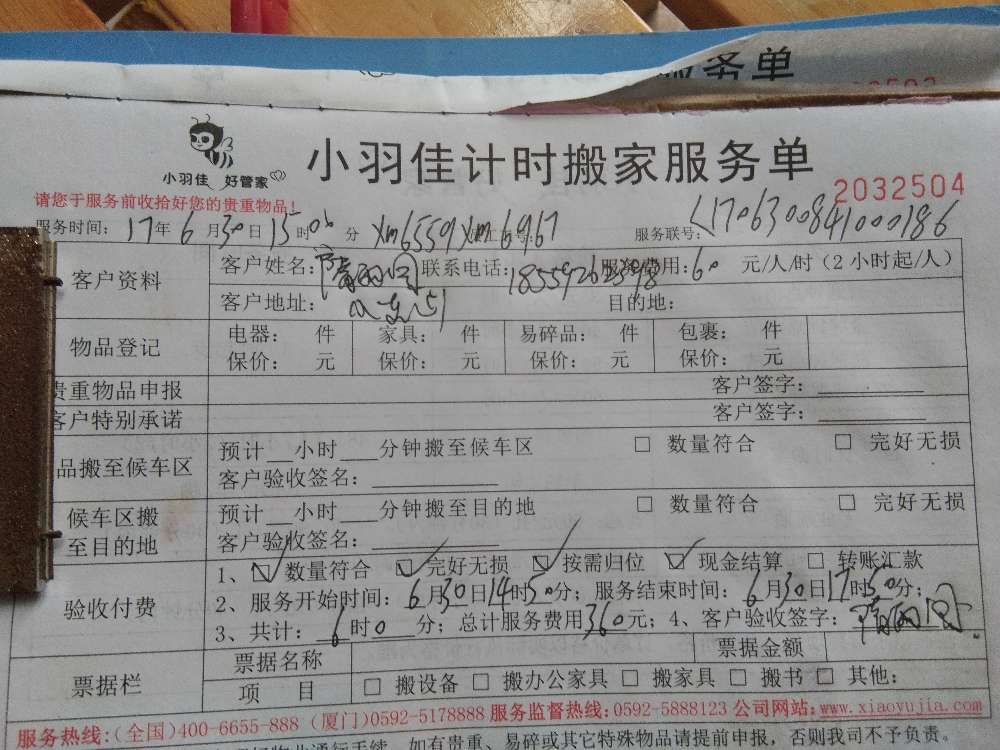 服务单
2032503
小羽佳 好管家
小羽佳计时搬家服务单
2032504
请您于服务前收拾好您的贵重物品!
服务时间: 17年6月30日15时00分 xm6559 xm6967 服务联号: L1706300841000186
客户资料 客户姓名: 联系电话: 18559262398 服务费用: 60 元/人/时 (2小时起/人)
客户地址: 目的地:
物品登记 电器: 件 家具: 件 易碎品: 件 包裹: 件
保价: 元 保价: 元 保价: 元 保价: 元
贵重物品申报 客户签字:
客户特别承诺 客户签字:
品搬至候车区 预计__小时___分钟搬至候车区 □ 数量符合 □ 完好无损
客户验收签名:
候车区搬至目的地 预计__小时___分钟搬至目的地 □ 数量符合 □ 完好无损
客户验收签名:
验收付费 1、☑数量符合 ☑完好无损 ☑按需归位 ☑现金结算 □ 转账汇款
2、服务开始时间: 6月30日14时50分; 服务结束时间: 6月30日17时50分;
3、共计: 6时0分; 总计服务费用360元; 4、客户验收签字:
票据栏 票据名称 票据金额
项 目 □ 搬设备 □ 搬办公家具 □ 搬家具 □ 搬书 □ 其他:
服务热线:(全国)400-6655-888 (厦门)0592-5178888 服务监督热线:0592-5888123 公司网站:www.xiaoyujia.com
如有贵重、易碎或其它特殊物品请提前申报，否则我司不予负责。